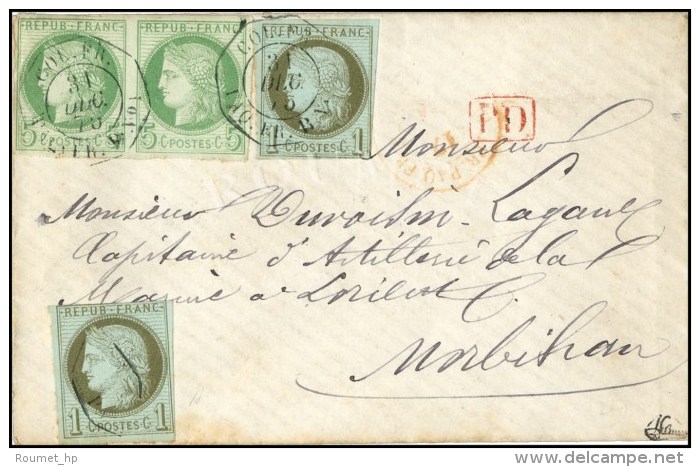 REPUB · FRANC
REPUB · FRANC
REPUB · FRANC
COR. FR.
31
DEC.
75
5 C POSTES C 5
5 C POSTES C 5
1 C POSTES C 1
PD
Monsieur
Monsieur
Capitaine d'Artillerie de la
Marine à Lorient
Morbihan
REPUB · FRANC
1 C POSTES C 1
Roumet_hp
www.delcampe.net